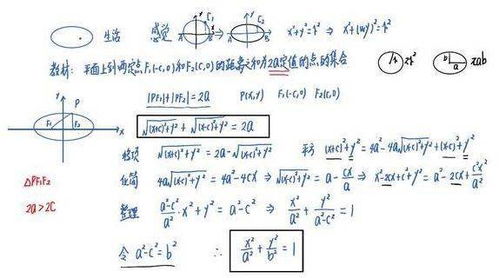 生活 感觉 ⇒ x²+y²=r² ⇒ x²+(my)²=r²
教材: 平面上到两定点F₁(-c,0)和F₂(c,0)的距离之和为2a定值的点的集合 πr² πab
|PF₁|+|PF₂|=2a P(x,y) F₁(-c,0) F₂(c,0)
√((x+c)²+y²) + √((x-c)²+y²) = 2a
移项 √((x+c)²+y²) = 2a-√((x-c)²+y²) 平方 (x+c)²+y² = 4a²-4a√((x-c)²+y²)+(x-c)²+y²
化简 4a√((x-c)²+y²) = 4a²-4cx ⇒ √((x-c)²+y²) = a-cx/a ⇒ x²-2cx+c²+y² = a²-2cx+c²x²/a²
整理 (a²-c²)/a²·x²+y² = a²-c² ⇒ x²/a²+y²/(a²-c²)=1
令 a²-c²=b² ∴ x²/a²+y²/b²=1
y
P
F₁ F₂ x
△PF₁F₂
2a>2c